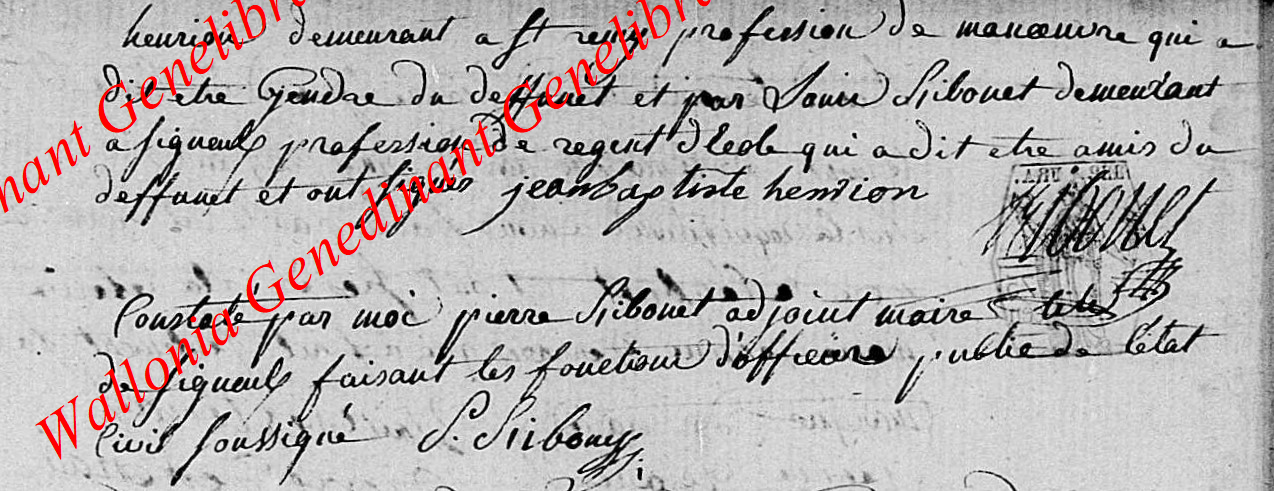 henrion demeurant a st remy profession de manoeuvre qui a
dit etre Gendre du deffunct et par Louis Ribonet demeurant
a signeulx profession de regent decole qui a dit etre amis du
deffunct et ont signés jeanbaptiste henrion
Constaté par moi pierre Ribonet adjoint maire
de signeulx faisant les fonctions d'officiere public de l'etat
Civil soussigné P. Ribonet
Wallonia Genedinant Genelibra
nant Genelibra